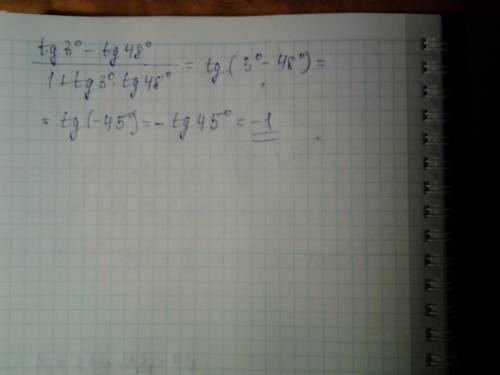 tg 3° - tg 48°
1 + tg 3° · tg 48° = tg (3° - 48°) =
= tg (-45°) = - tg 45° = -1